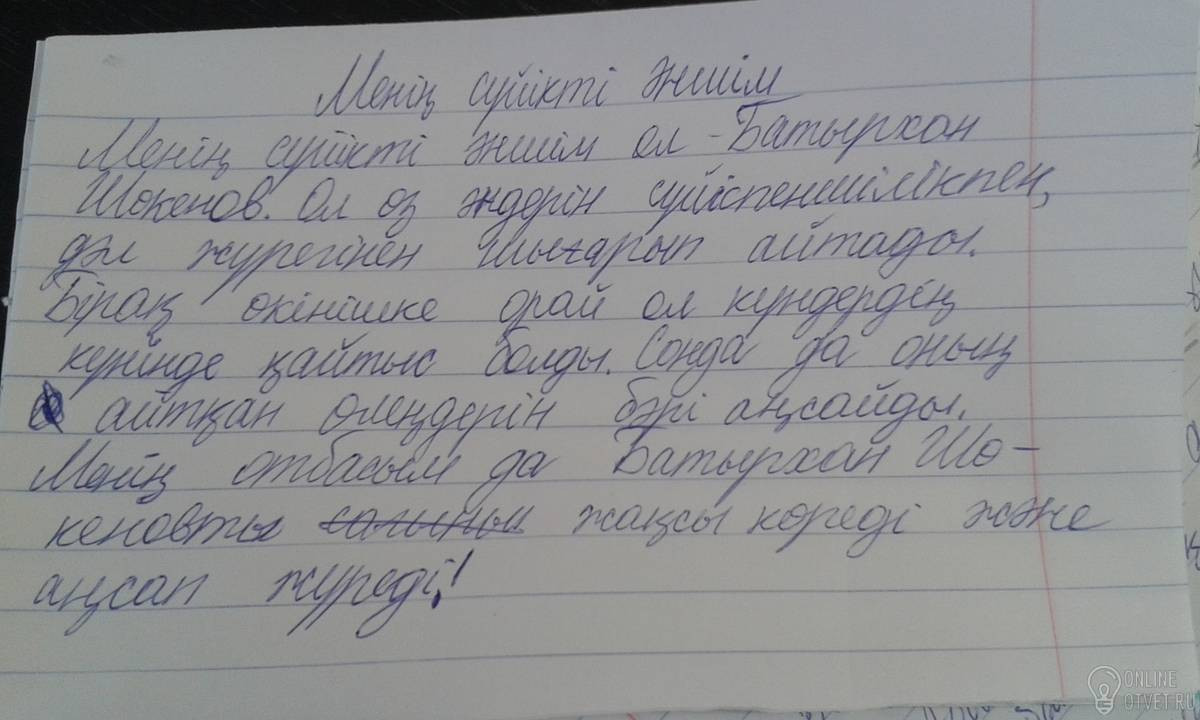 Менің сүйікті әншім
Менің сүйікті әншім ол - Батырхан
Шокенов. Ол өз әндерін сүйіспеншілікпен,
дәл жүрегінен шығарып айтады.
Бірақ өкінішке орай ол күндердің
күнінде қайтыс болды. Сонда да оның
айтқан өлеңдерін бәрі аңсайды.
Менің отбасым да Батырхан Шо-
кеновты жақсы көреді және
аңсап жүреді!
ONLINE
OTVET.RU